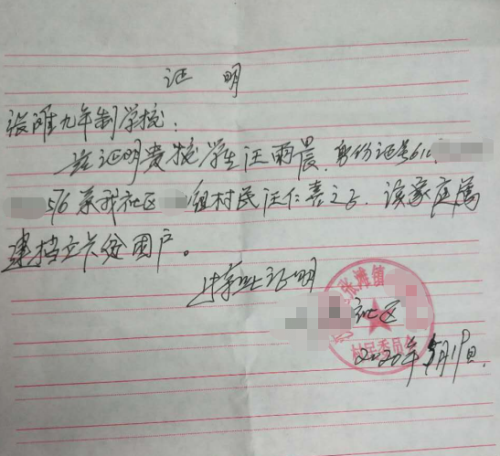 证 明
张滩九年制学校:
兹证明贵校学生汪雨晨,身份证号61
576系我社区 组村民汪仁喜之子,该家庭属
建档立卡贫困户。
特此证明
张滩镇
社区
村民委员会
2020年5月19日.